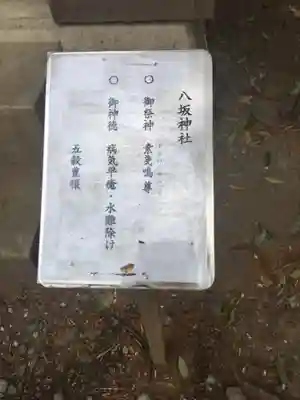 八坂神社
○ 御祭神 素戔嗚尊
○ 御神徳 病気平癒・水難除け
五穀豊穣